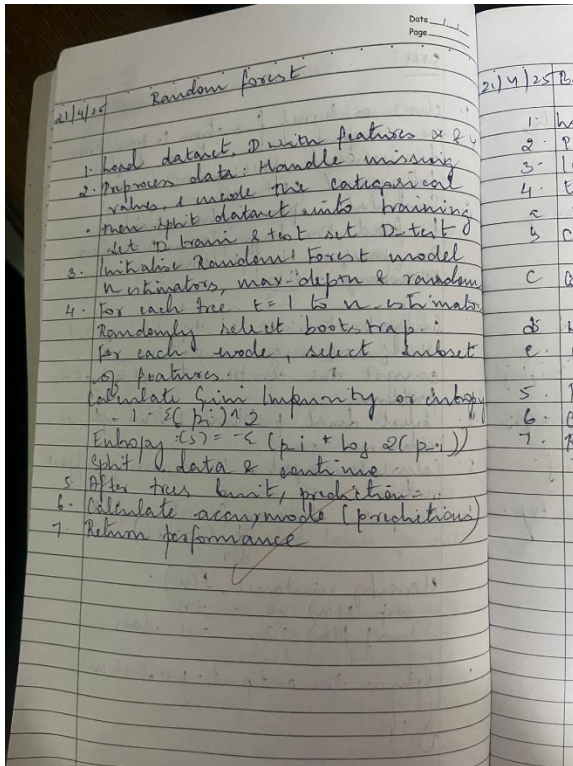 Date
Page
21/4/25 Random forest
1. Load dataset, D with features x & y
2. Preprocess data: Handle missing
values, & encode the categorical
. then split dataset into training
set D_train & test set D-test
3. Initialise Random Forest model
n estimators, max-depth & random
4. For each tree t = 1 to n estimators
Randomly select bootstrap.
For each node, select subset
of features.
Calculate Gini Impurity or entropy
1 - Σ(pi)^2
Entropy (S) = -Σ (pi * log 2(pi))
Split data & continue
5. After trees built, prediction =
6. Calculate mode (predictions)
7. Return performance
21/4/25
1.
2.
3.
4.
a
b
c
e.
5.
6.
7.